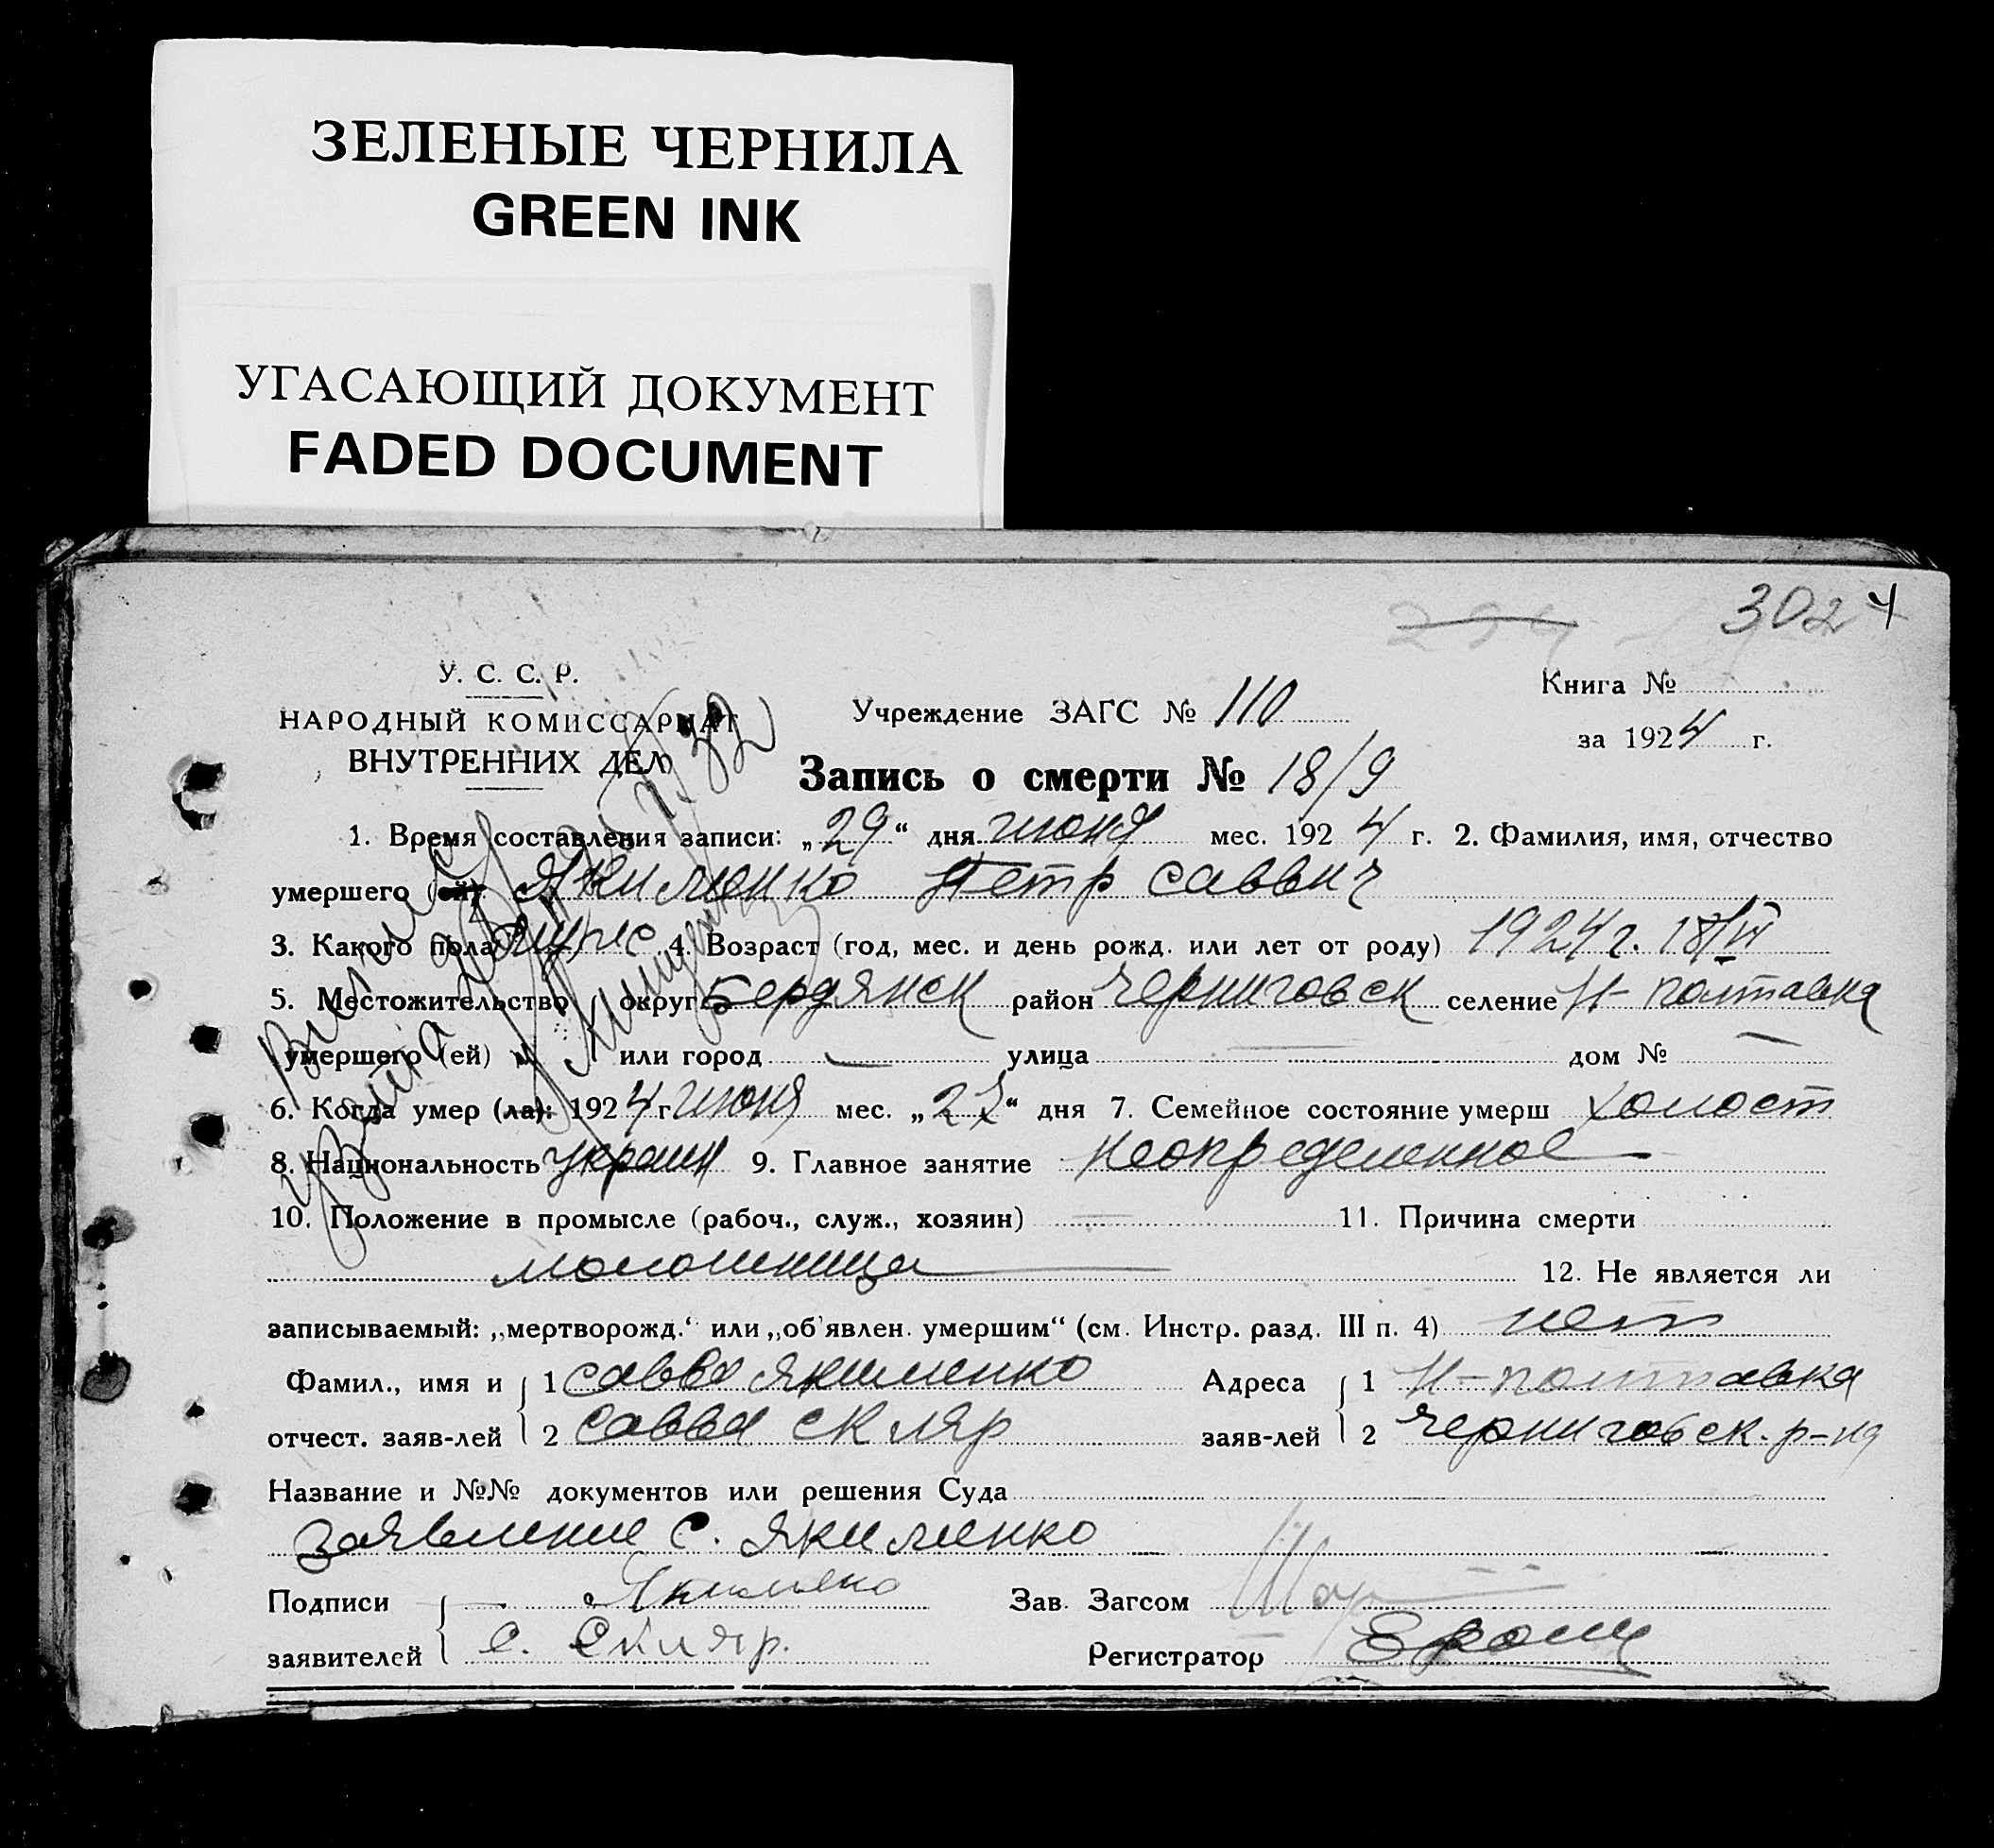 ЗЕЛЕНЫЕ ЧЕРНИЛА
GREEN INK
УГАСАЮЩИЙ ДОКУМЕНТ
FADED DOCUMENT
302 4
У. С. С. Р.
НАРОДНЫЙ КОМИССАРИАТ
ВНУТРЕННИХ ДЕЛ
Учреждение ЗАГС № 110
Книга №
за 1924 г.
Запись о смерти № 18/9
1. Время составления записи: „29“ дня июня мес. 1924 г. 2. Фамилия, имя, отчество
умершего (ей) Якименко Петр Саввич
3. Какого пола муж 4. Возраст (год, мес. и день рожд. или лет от роду) 1924 г. 18/VI
5. Местожительство округ Бердянск район Черниговск селение Н-Полтавка
умершего (ей) или город — улица — дом № —
6. Когда умер (ла): 1924 г июня мес. „27“ дня 7. Семейное состояние умерш холост
8. Национальность украин 9. Главное занятие неопределенное
10. Положение в промысле (рабоч., служ., хозяин) — 11. Причина смерти
молошница
12. Не является ли
записываемый: „мертворожд.“ или „об'явлен. умершим“ (см. Инстр. разд. III п. 4) нет
Фамил., имя и 1 Савва Якименко Адреса 1 Н-Полтавка
отчест. заяв-лей 2 Савва Скляр заяв-лей 2 Черниговск. р-на
Название и №№ документов или решения Суда
заявление С. Якименко
Подписи Якименко Зав. Загсом
заявителей С. Скляр. Регистратор